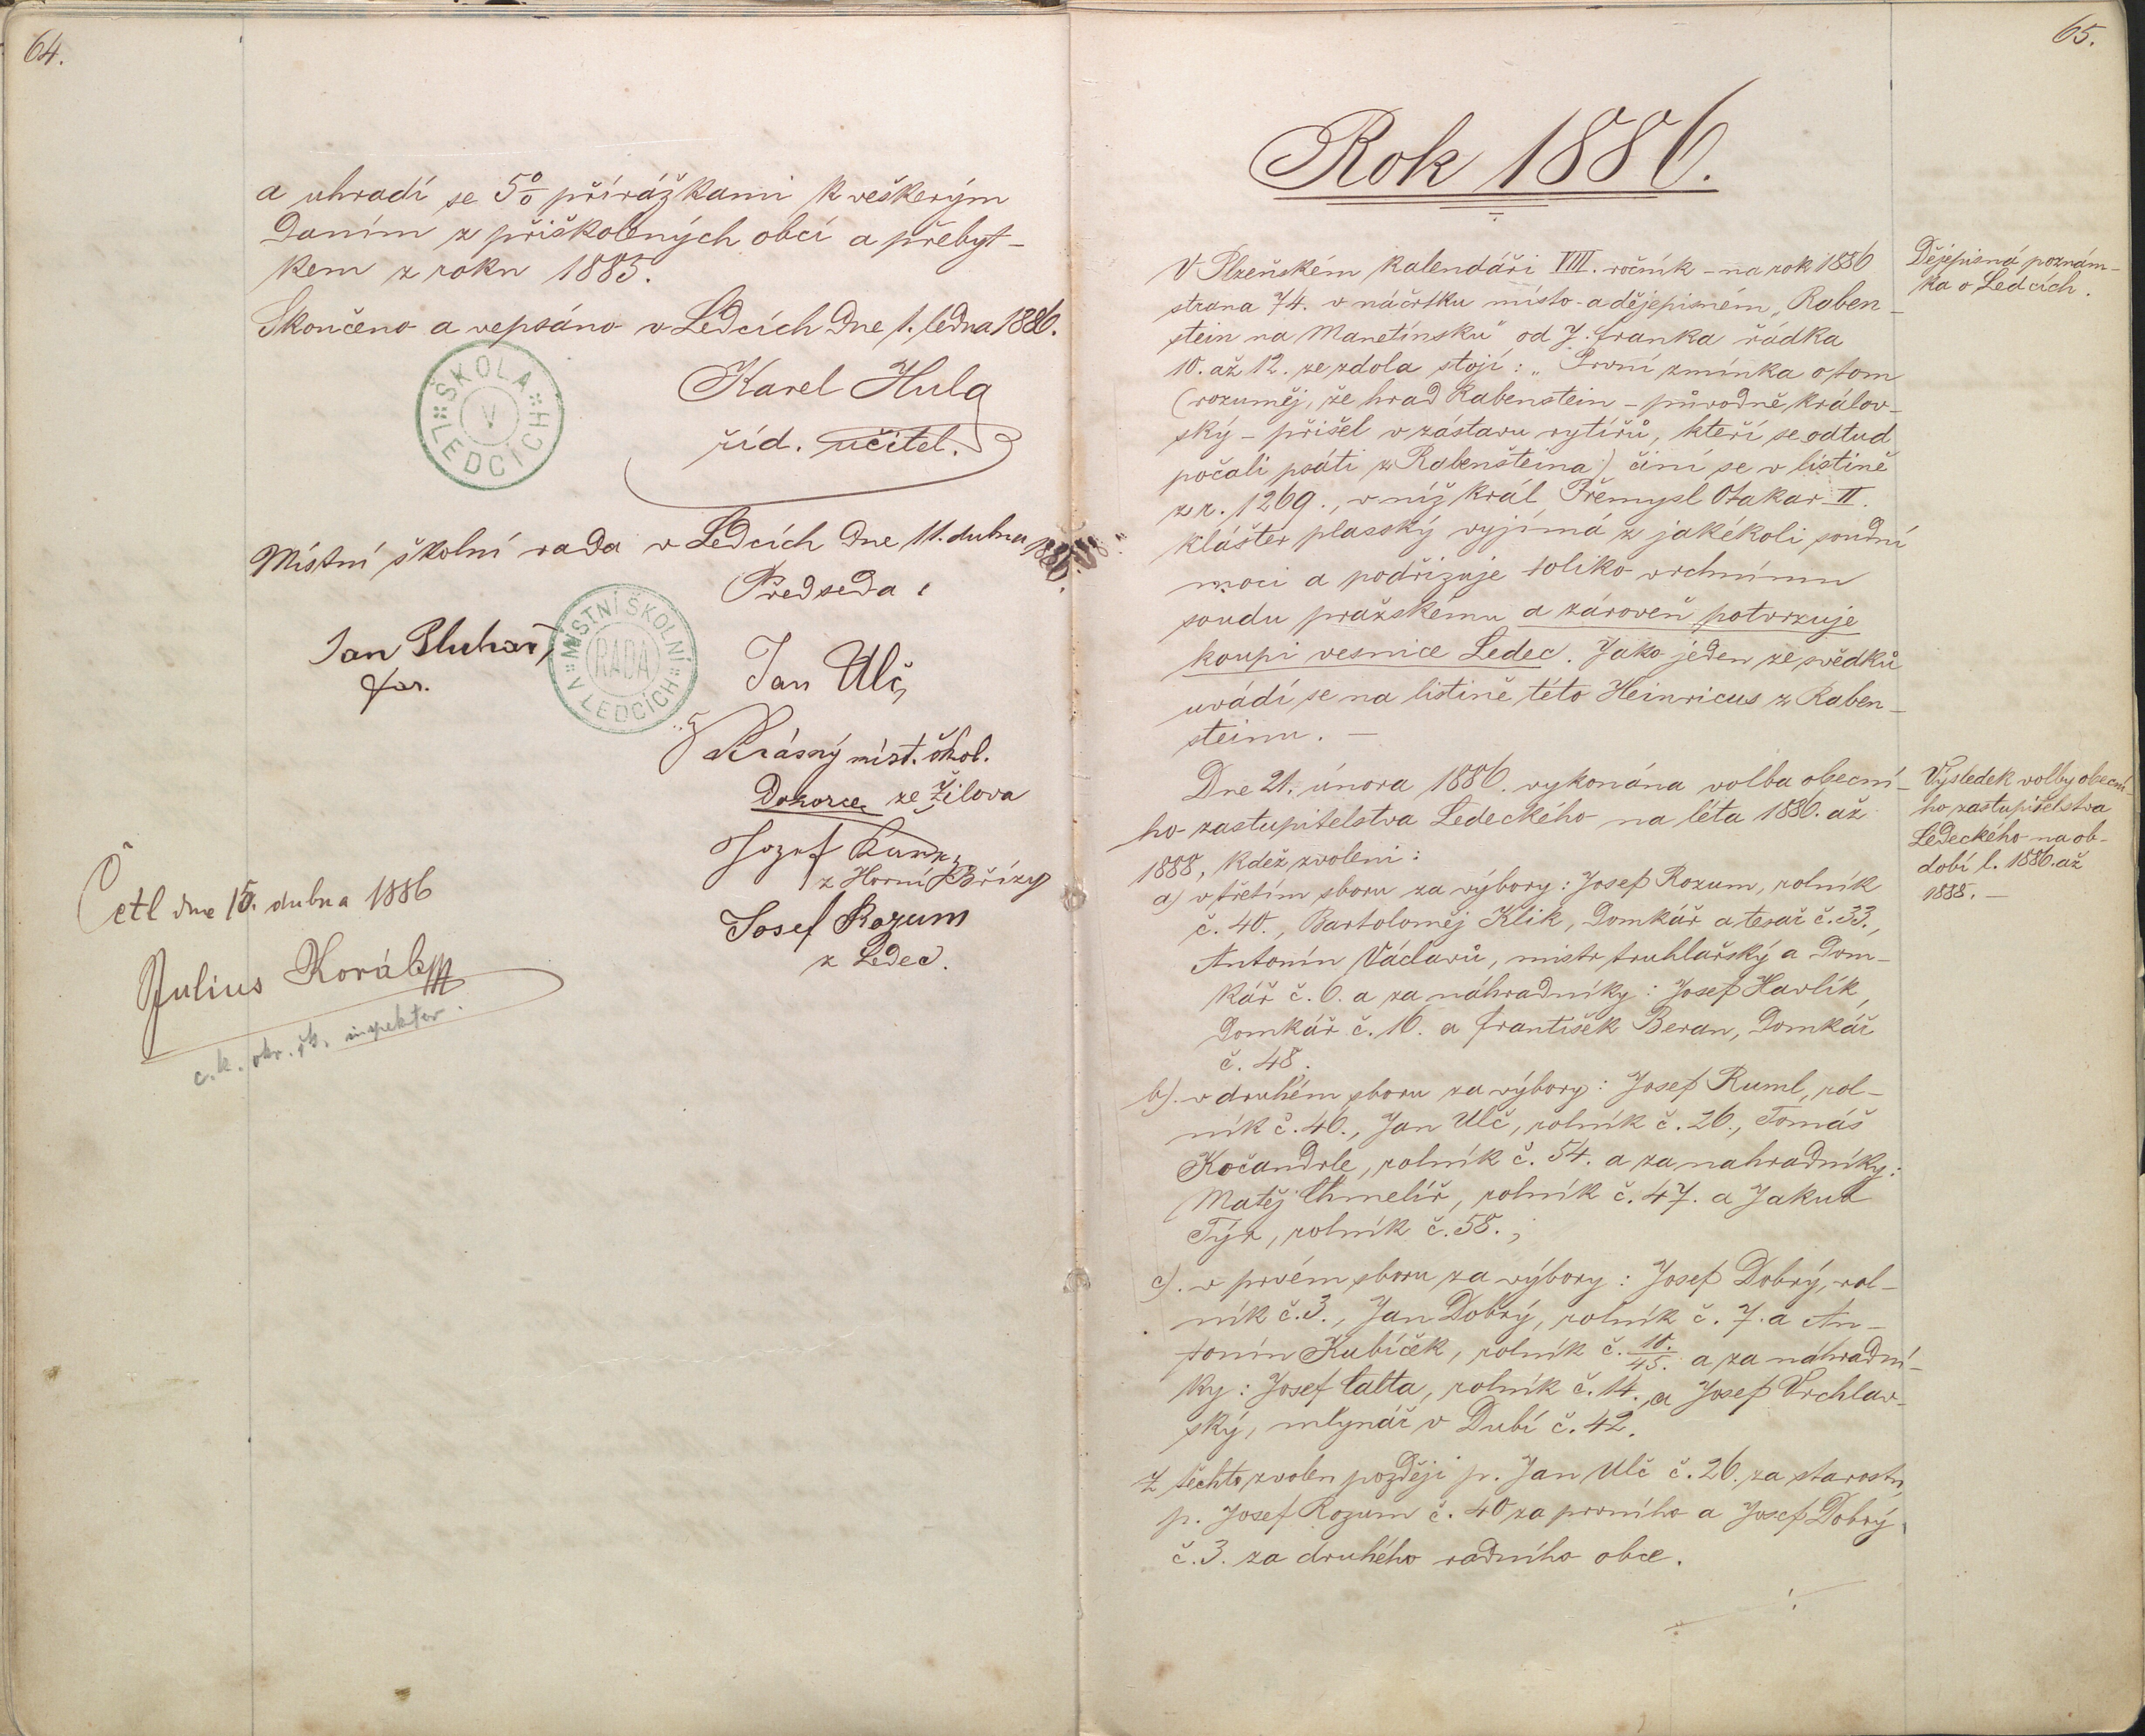 64.
a uhradí se 5% přirážkami k veškerým
daním z přiškolených obcí a přebyt-
kem z roku 1885.
Skončeno a vepsáno v Ledcích dne 1. ledna 1886.
Karel Hula
říd. učitel.
ŠKOLA V LEDCÍCH
Místní školní rada v Ledcích dne 11. dubna 1886.
Předseda:
Jan Pluhař,
far.
MÍSTNÍ ŠKOLNÍ RADA V LEDCÍCH
Jan Ulč,
Krásný míst. škol.
Dozorce ze Žilova
Jozef
z Horní Břízy
Josef Rozum
z Ledec.
Četl dne 15. dubna 1886
Julius Koráb
c. k. okr. šk. inspektor.
65.
Rok 1886.
V Plzeňském kalendáři VIII. ročník - na rok 1886
strana 74. v náčrtku místo- a dějepisném „Raben-
stein na Manetínsku" od J. Franka řádka
10. až 12. ze zdola stojí: „První zmínka o tom
(rozuměj, že hrad Rabenstein - původně králov-
ský - přišel v zástavu rytířů, kteří se odtud
počali psáti z Rabenšteina) činí se v listině
z r. 1269., v níž král Přemysl Otakar II.
klášter plasský vyjímá z jakékoli soudní
moci a podřizuje toliko vrchnímu
soudu pražskému a zároveň potvrzuje
koupi vesnice Ledec. Jako jeden ze svědků
uvádí se na listině této Heinricus z Raben-
steinu. —
Dějepisná poznám-
ka o Ledcích.
Dne 21. února 1886. vykonána volba obecní-
ho zastupitelstva Ledeckého na léta 1886. až
1888, kdež zvoleni:
Výsledek volby obecní-
ho zastupitelstva
Ledeckého na ob-
dobí l. 1886. až
1888. —
a) v třetím sboru za výbory: Josef Rozum, rolník
č. 40., Bartoloměj Klik, domkář a tesař č. 33.,
Antonín Václavů, mistr truhlařský a dom-
kář č. 6. a za náhradníky: Josef Havlík,
domkář č. 16. a František Beran, domkář
č. 48.
b). v druhém sboru za výbory: Josef Ruml, rol-
ník č. 46., Jan Ulč, rolník č. 26., Tomáš
Kočandrle, rolník č. 54. a za nahradníky:
Matěj Chmelíř, rolník č. 47. a Jakub
Týr, rolník č. 58.;
c). v prvém sboru za výbory: Josef Dobrý, rol-
ník č. 3., Jan Dobrý, rolník č. 7. a An-
tonín Kubíček, rolník č. 10./45. a za náhradní-
ky: Josef Calta, rolník č. 14. a Josef Vrchlav-
ský, mlynář v Dubí č. 42.
Z těchto zvolen později p. Jan Ulč č. 26. za starostu,
p. Josef Rozum č. 40 za prvního a Josef Dobrý
č. 3. za druhého radního obce.